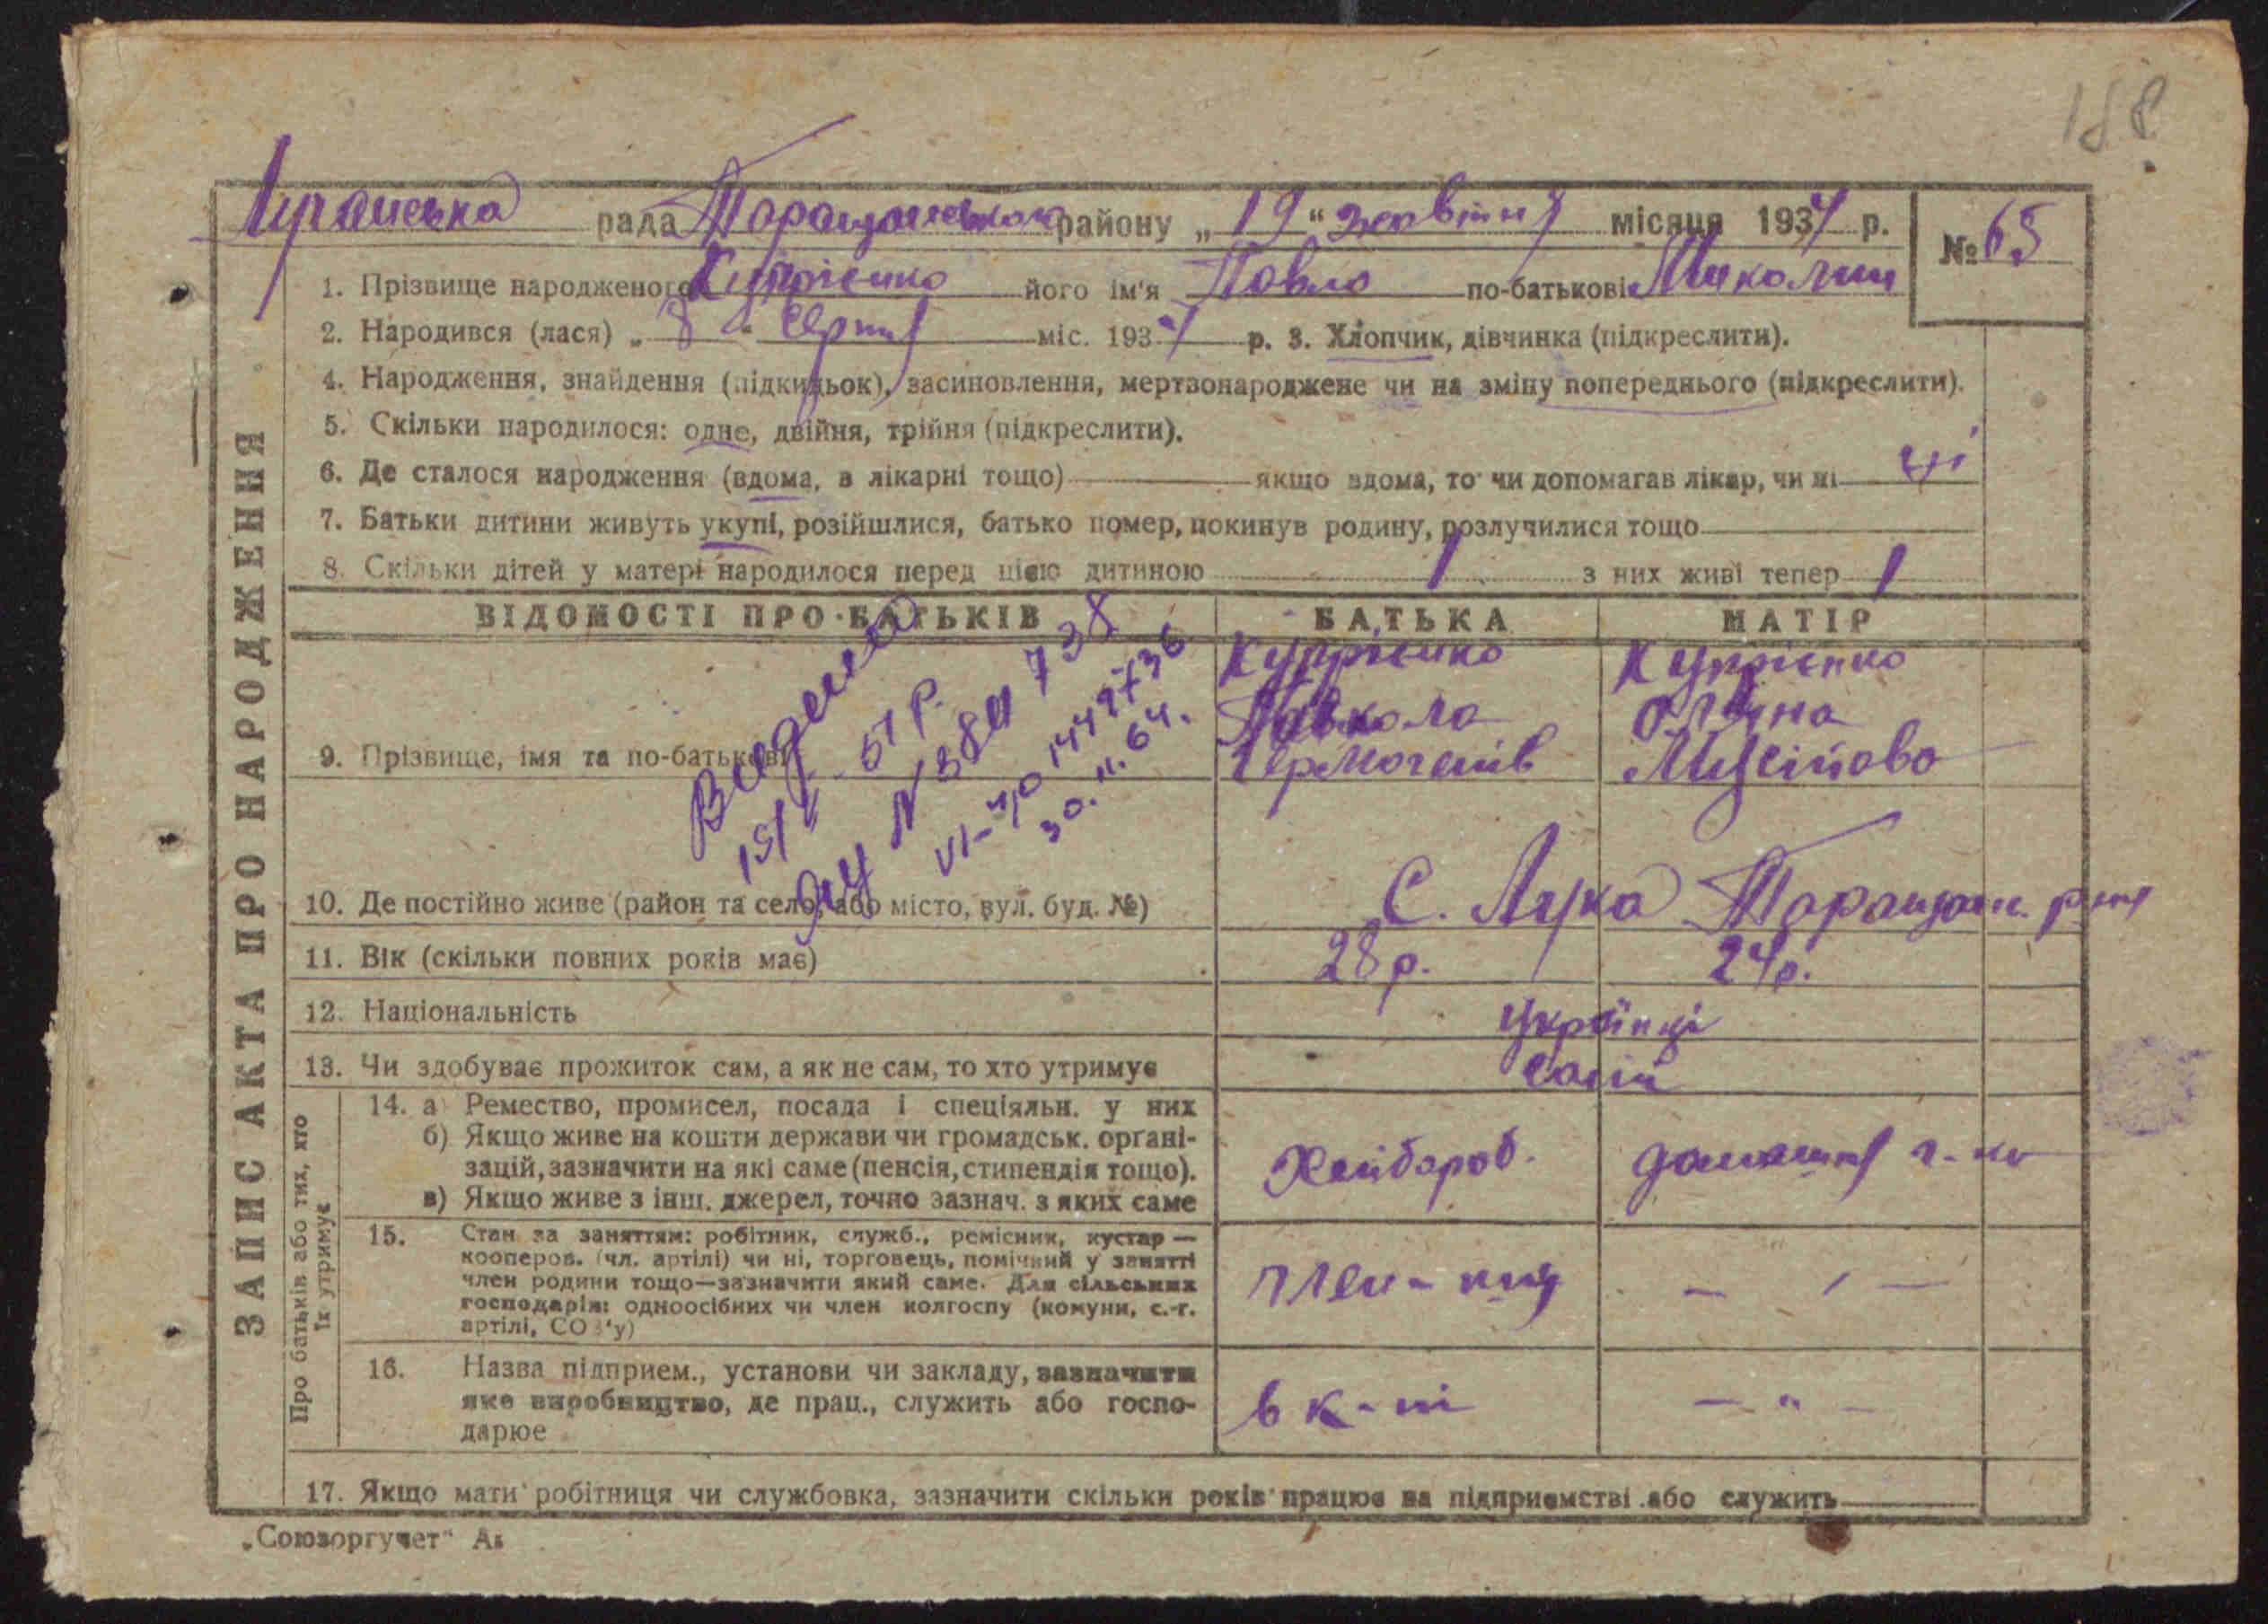 188
Луганська рада Таращанськом району „19“ жовтня місяця 1937 р. № 65
1. Прізвище народженого Купрієнко його ім'я Павло по-батькові Миколин
2. Народився (лася) „8“ Серпня міс. 1937 р. 3. Хлопчик, дівчинка (підкреслити).
4. Народження, знайдення (підкидьок), засиновлення, мертвонароджене чи на зміну попереднього (підкреслити).
5. Скільки народилося: одне, двійня, трійня (підкреслити).
6. Де сталося народження (вдома, в лікарні тощо) якщо вдома, то чи допомагав лікар, чи ні ні
7. Батьки дитини живуть укупі, розійшлися, батько помер, покинув родину, розлучилися тощо
8. Скільки дітей у матері народилося перед цією дитиною 1 з них живі тепер 1
ЗАПИС АКТА ПРО НАРОДЖЕННЯ
ВІДОМОСТІ ПРО БАТЬКІВ БАТЬКА МАТІР
9. Прізвище, імя та по-батькові
Купрієнко
Микола
Гермогенів
Купрієнко
Мусіїово
51 р.
№ 380 738
VI-ЧО 1449736
30.11.64.
10. Де постійно живе (район та село, або місто, вул. буд. №) С. Лука Таращан. р-ну
11. Вік (скільки повних років має) 28 р. 24 р.
12. Національність Українці
13. Чи здобуває прожиток сам, а як не сам, то хто утримує самі
Про батьків або тих, хто їх утримує
14. а) Ремество, промисел, посада і спеціяльн. у них
б) Якщо живе на кошти держави чи громадськ. органі-
зацій, зазначити на які саме (пенсія, стипендія тощо).
в) Якщо живе з інш. джерел, точно зазнач. з яких саме
Хлібороб. домашня г-ка
15. Стан за заняттям: робітник, служб., ремісник, кустар —
кооперов. (чл. артілі) чи ні, торговець, помічний у занятті
член родини тощо—зазначити який саме. Для сільських
господарів: одноосібних чи член колгоспу (комуни, с.-г.
артілі, СОЗ'у)
член к-пу — " —
16. Назва підприєм., установи чи закладу, зазначити
яке виробництво, де прац., служить або госпо-
дарює
в к-пі — " —
17. Якщо мати робітниця чи службовка, зазначити скільки років працює на підприємстві або служить
„Союзоргучет"